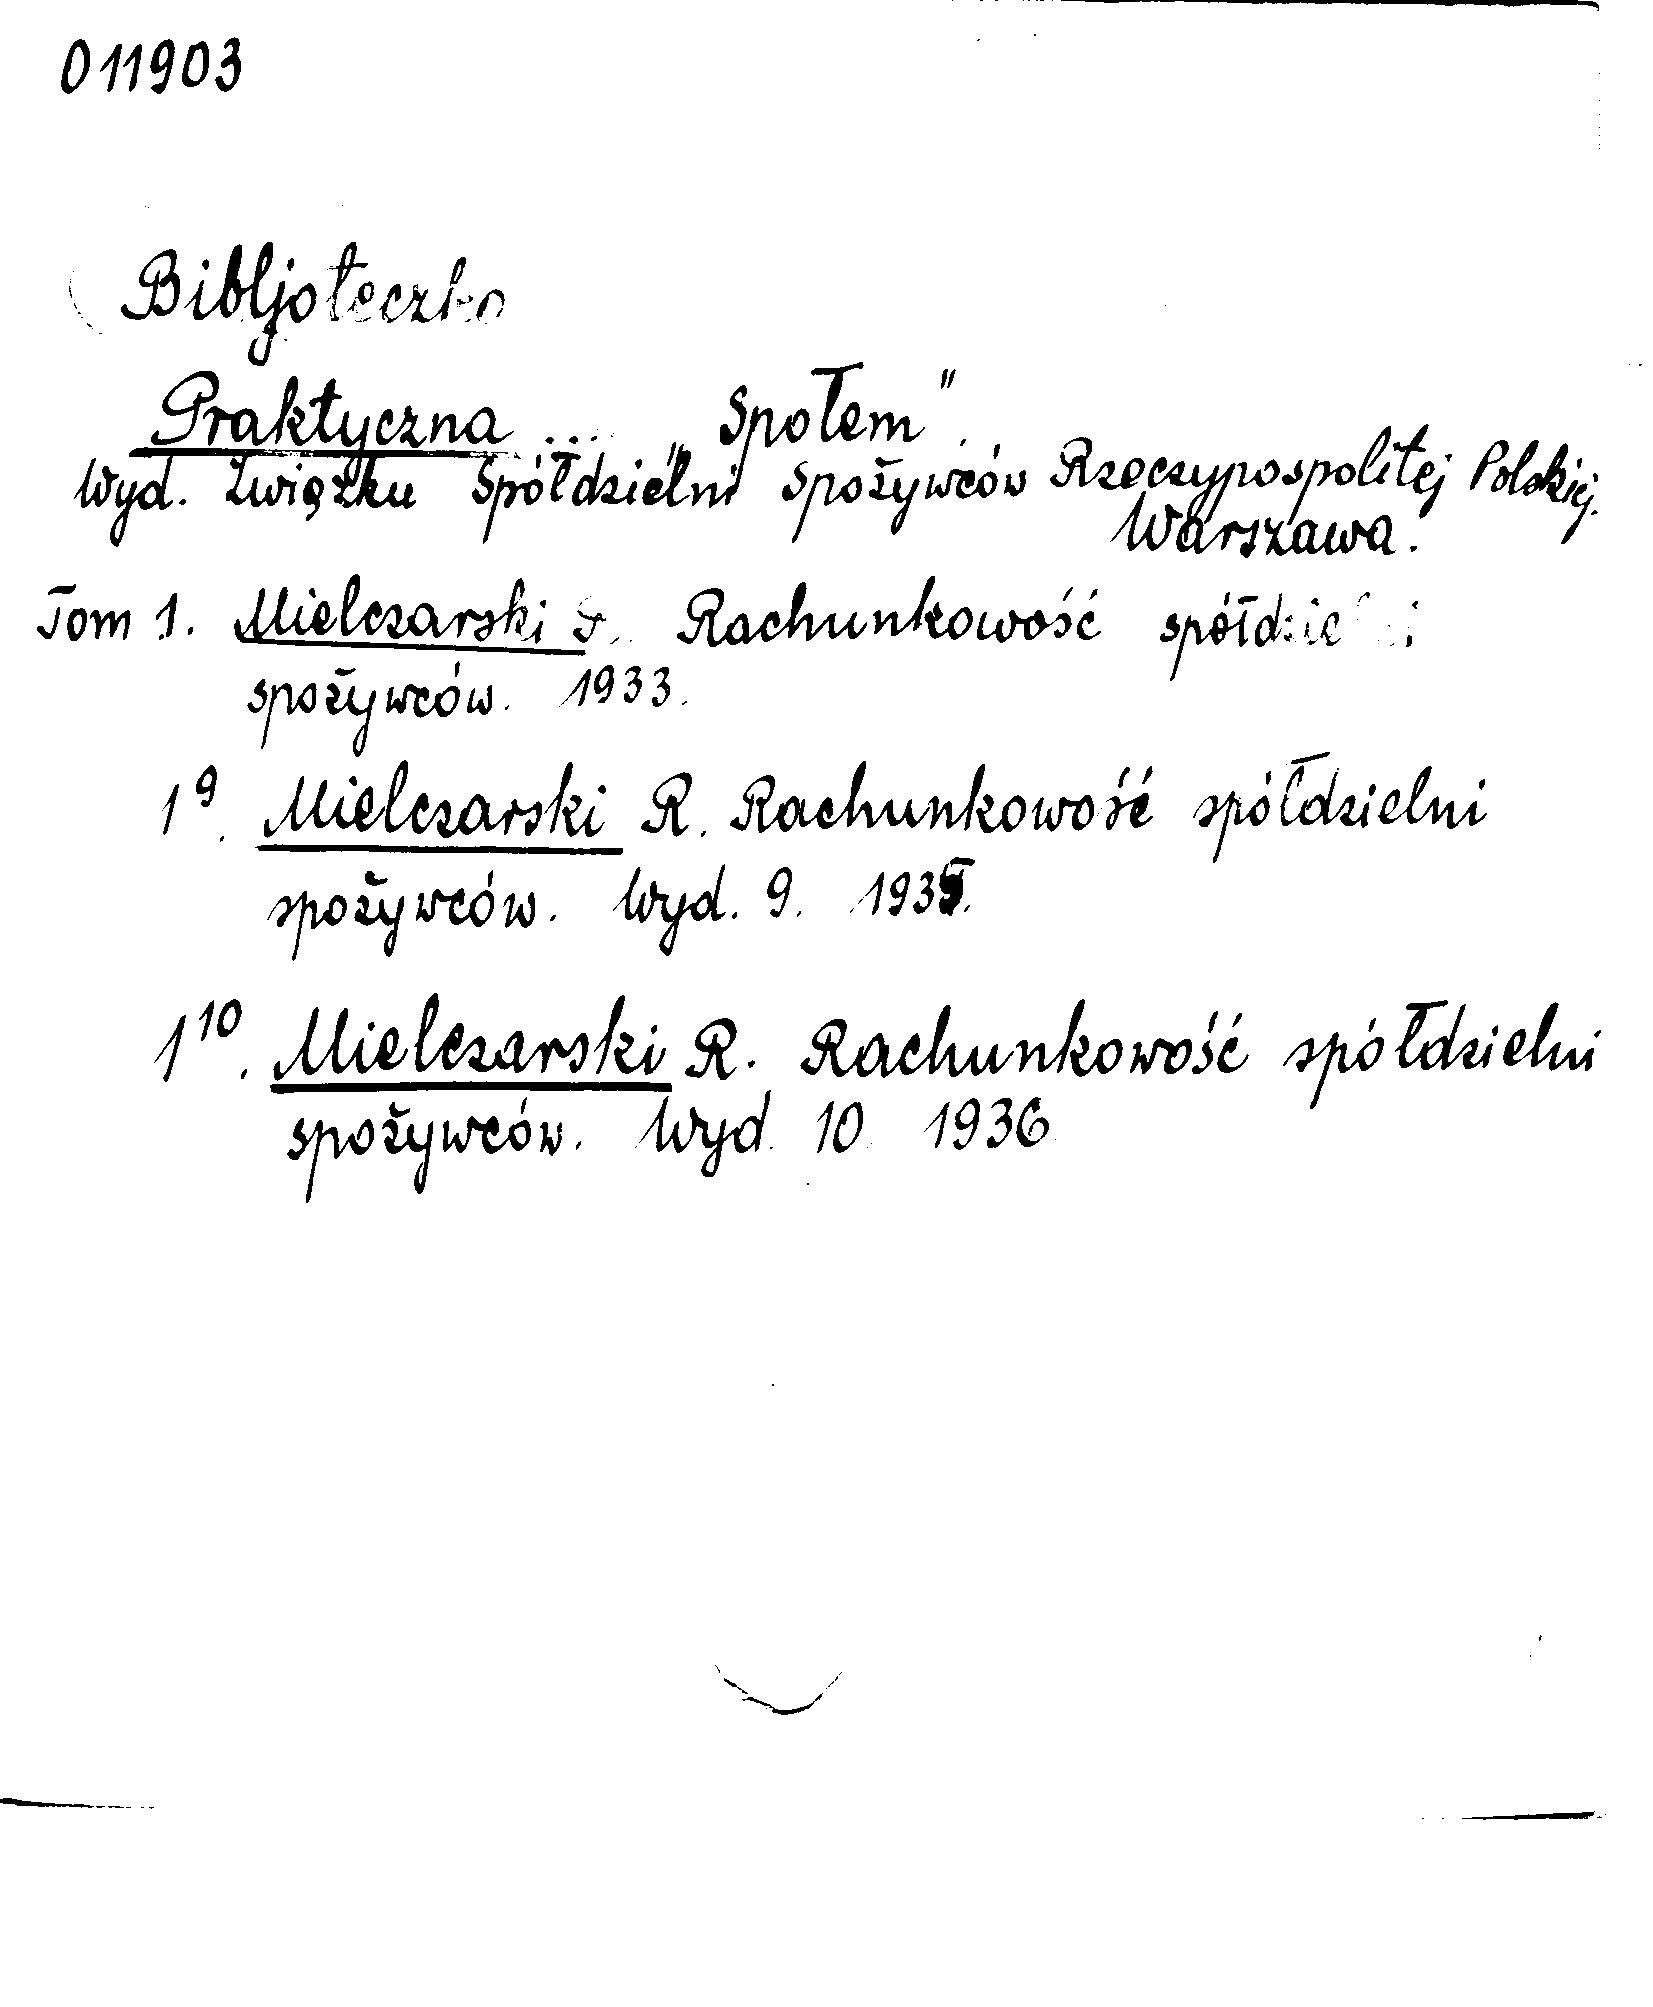 011903
Bibljoteczka
Praktyczna ... „Społem”.
Wyd. Związku Spółdzielni Spożywców Rzeczypospolitej Polskiej.
Warszawa.
Tom 1. Mielczarski Rachunkowość spółdzielni
spożywców. 1933.
1⁹. Mielczarski R. Rachunkowość spółdzielni
spożywców. Wyd. 9. 1935.
1¹⁰. Mielczarski R. Rachunkowość spółdzielni
spożywców. Wyd. 10 1936